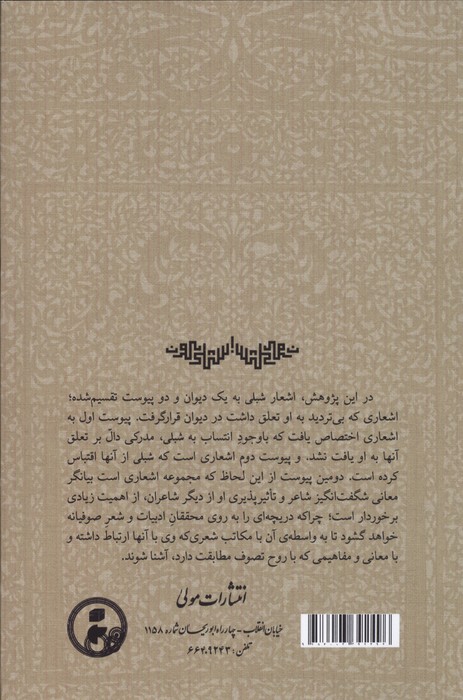 در این پژوهش، اشعار شبلی به یک دیوان و دو پیوست تقسیم‌شده؛
اشعاری که بی‌تردید به او تعلق داشت در دیوان قرارگرفت. پیوست اول به
اشعاری اختصاص یافت که باوجودِ انتساب به شبلی، مدرکی دالّ بر تعلق
آنها به او یافت نشد. و پیوست دوم اشعاری است که شبلی از آنها اقتباس
کرده است. دومین پیوست از این لحاظ که مجموعه اشعاری است بیانگر
معانی شگفت‌انگیز شاعر و تأثیرپذیری او از دیگر شاعران، از اهمیت زیادی
برخوردار است؛ چراکه دریچه‌ای را به روی محققانِ ادبیات و شعرِ صوفیانه
خواهد گشود تا به واسطه‌ی آن با مکاتب شعری‌که وی با آنها ارتباط داشته و
با معانی و مفاهیمی که با روح تصوف مطابقت دارد، آشنا شوند.
انتشارات مولی
خیابان انقلاب - چهارراه ابوریحان شماره ۱۱۵۸
تلفن: ۶۶۴۰۹۲۴۳